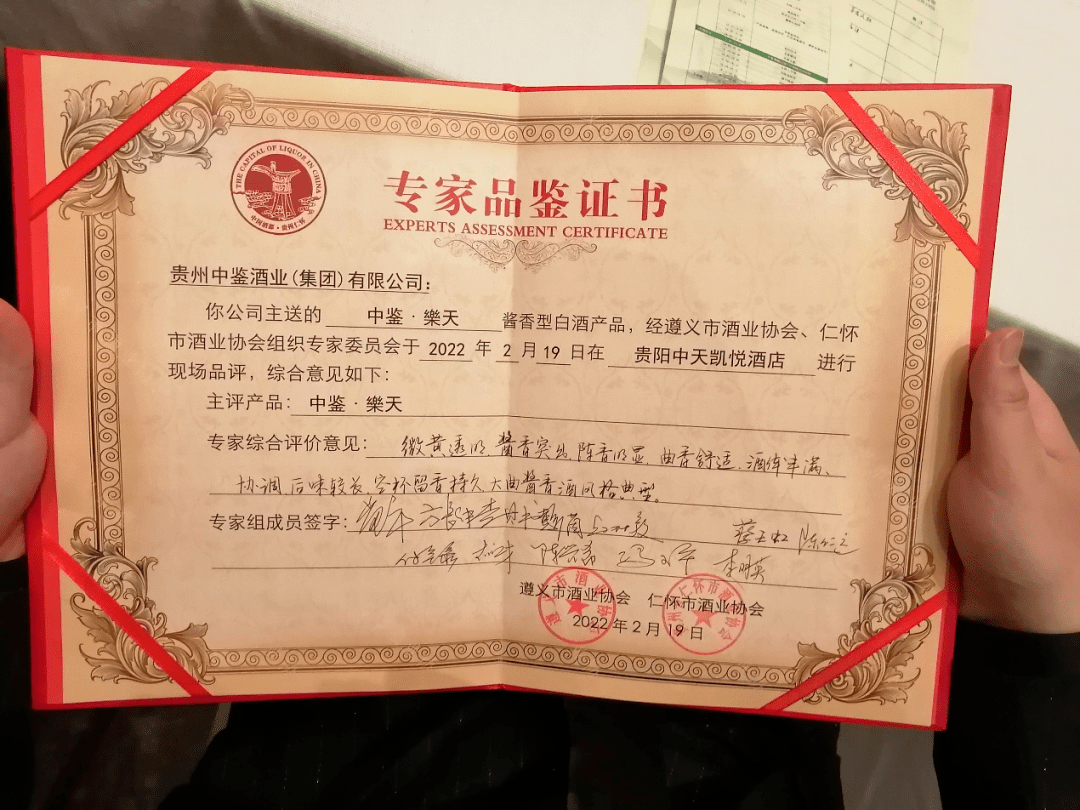 THE CAPITAL OF LIQUOR IN CHINA
中国酒都·贵州仁怀
专家品鉴证书
EXPERTS ASSESSMENT CERTIFICATE
贵州中鉴酒业(集团)有限公司:
你公司主送的 中鉴·樂天 酱香型白酒产品，经遵义市酒业协会、仁怀
市酒业协会组织专家委员会于 2022 年 2 月 19 日在 贵阳中天凯悦酒店 进行
现场品评，综合意见如下:
主评产品: 中鉴·樂天
专家综合评价意见: 微黄透明、酱香突出、陈香明显、曲香舒适、酒体丰满、
协调、后味较长、空杯留香持久、大曲酱香酒风格典型。
专家组成员签字:
李明英
遵义市酒业协会 仁怀市酒业协会
2022年2月19日